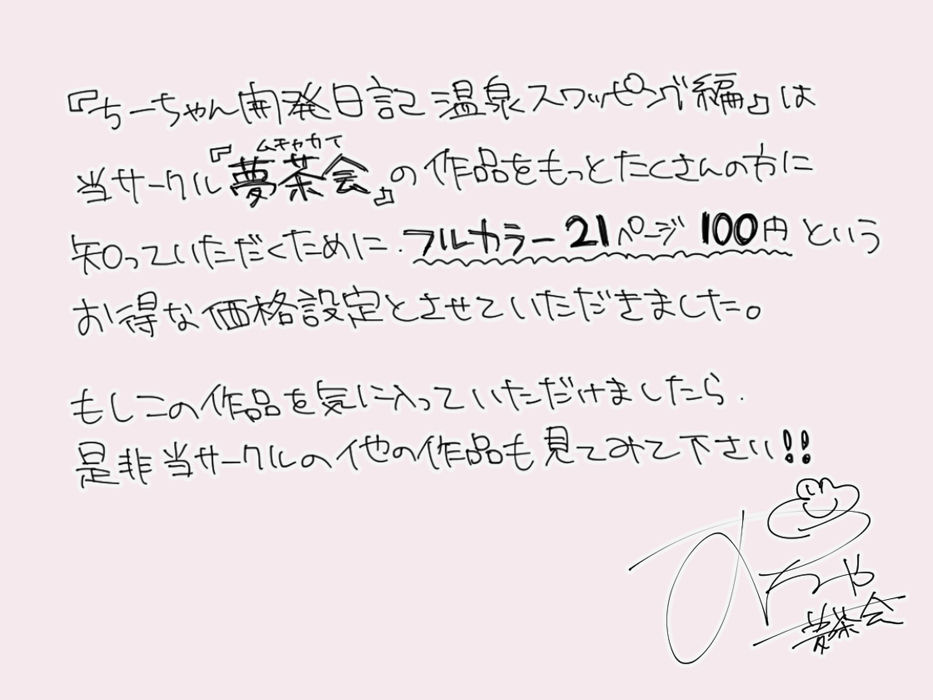 『ちーちゃん開発日記 温泉スワッピング編』は
ムチャカイ
当サークル『夢茶会』の作品をもっとたくさんの方に
知っていただくために、フルカラー21ページ100円という
お得な価格設定とさせていただきました。
もしこの作品を気に入っていただけましたら、
是非当サークルの他の作品も見てみて下さい!!
夢茶会